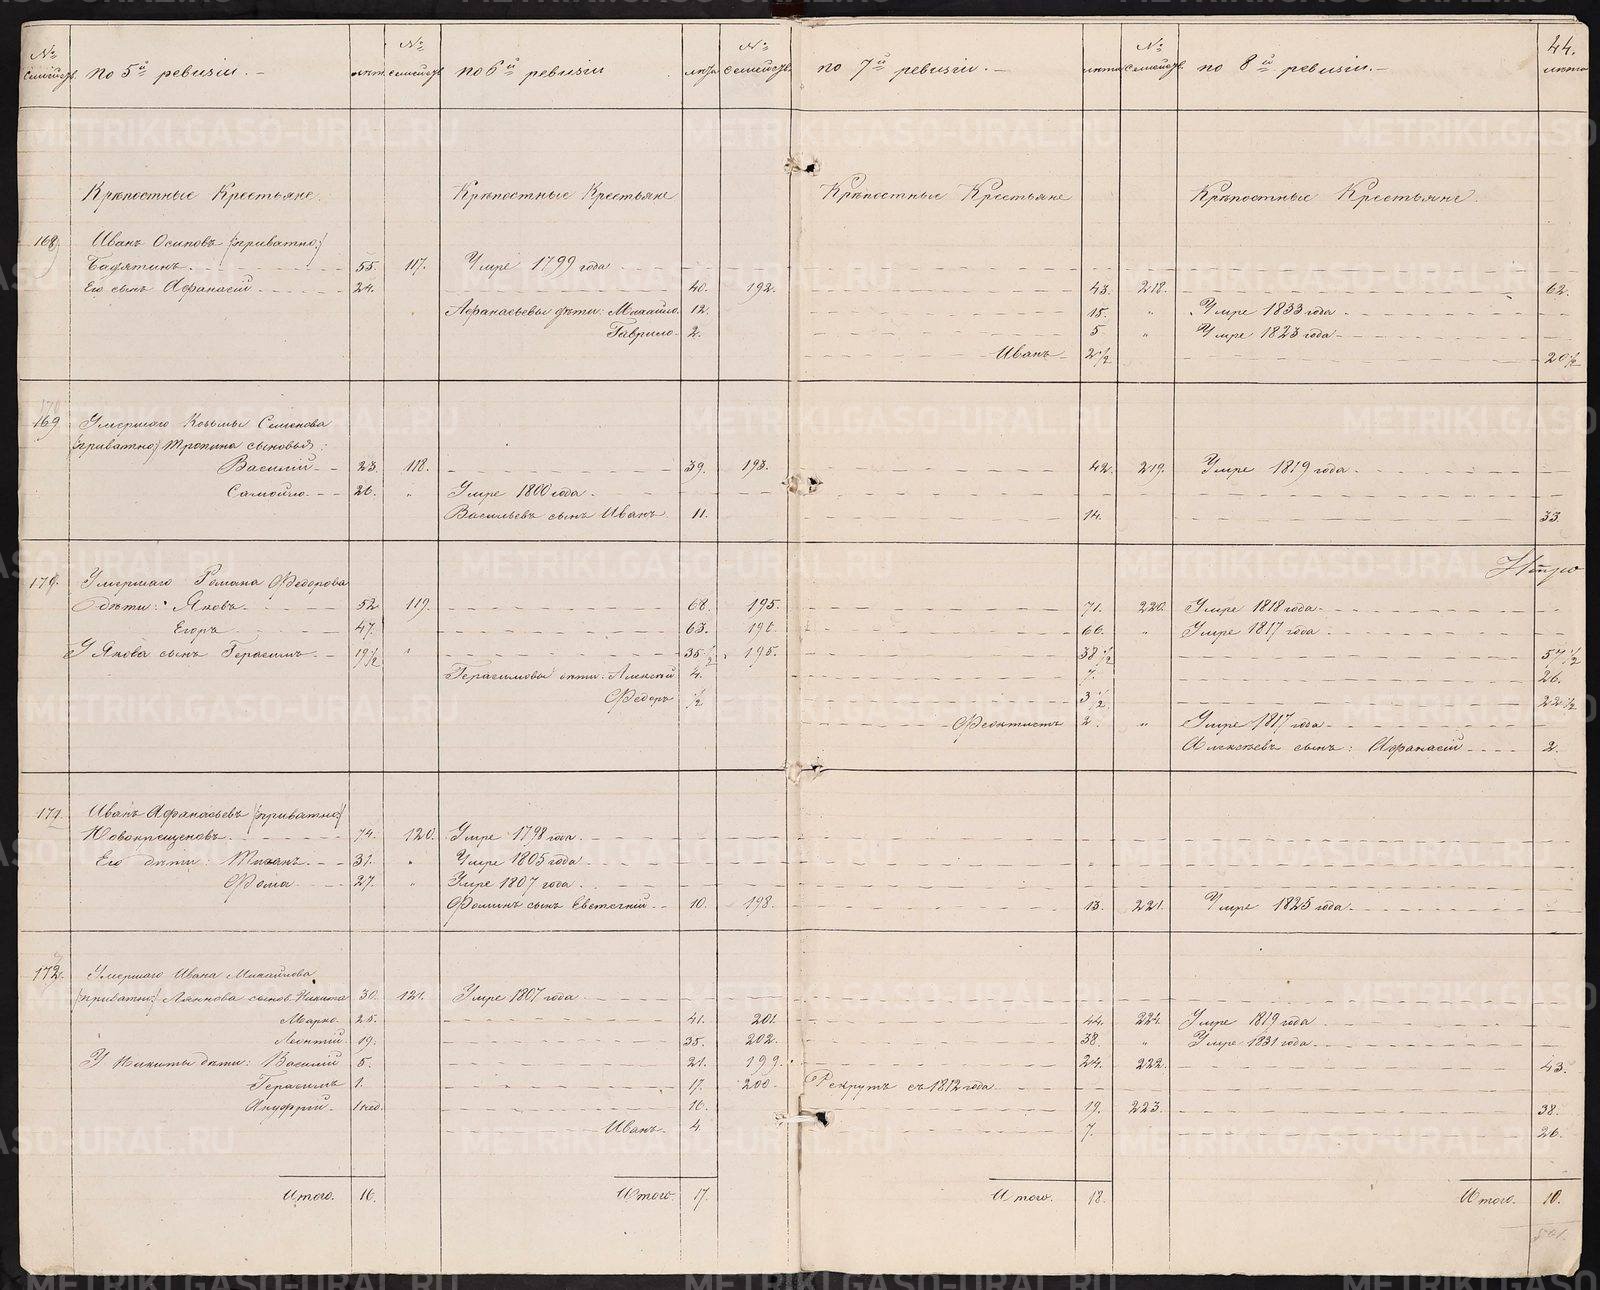 44.
№ семейств. по 5й ревизии. — лета № семейств. по 6й ревизии лета № семейств. по 7й ревизии. — лета № семейств. по 8й ревизии. — лета
Крѣпостные Крестьяне. Крѣпостные Крестьяне Крѣпостные Крестьяне Крѣпостные Крестьяне.
168 Иванъ Осиповъ /приватно:/
55. 117. Умре 1799 года
Его сынъ Афанасій 24. 40. 192. 43. 218. 62.
Афанасьевы дѣти: Михайло. 12. 15. " Умре 1833 года
Гаврило 2. 5 " Умре 1823 года
Иванъ 2 1/2 20 1/2
169 Умершаго Козьмы Семенова
/приватно/ Тропина сыновья:
Василій 23. 118. 39. 193. 42. 219. Умре 1819 года
Самойло 26. " Умре 1800 года.
Васильевъ сынъ Иванъ 11. 14. 33.
170. Умершаго Романа Ѳедорова
дѣти: Яковъ. 52. 119. 68. 195. 71. 220. Умре 1818 года
Егоръ 47. 63. 196. 66. " Умре 1817 года
У Якова сынъ Герасимъ. 19 1/2 " 35 1/2 195. 38 1/2 57 1/2
Герасимовы дѣти: Алексѣй 4. 7. 26.
Ѳедоръ 1/2 3 1/2 22 1/2
Ѳеоктистъ 2. " Умре 1817 года
Алексѣевъ сынъ: Афанасій 2.
171. Иванъ Афанасьевъ /приватно/
Новокрещеновъ. 74. 120. Умре 1798 года
Его дѣти: 31. " Умре 1805 года
Ѳома 27. " Умре 1807 года.
Ѳоминъ сынъ Евстегній 10. 198. 13. 221. Умре 1825 года.
172. Умершаго Ивана Михайлова
/приватно:/ сынов. Никита 30. 121. Умре 1807 года
Марко. 25. 41. 201. 44. 224. Умре 1819 года
Леонтій 19. 35. 202. 38. " Умре 1831 года.
У Никиты дѣти: Василій 5. 21. 199. 24. 222. 43.
Герасимъ 1. 17. 200. Рекрутъ съ 1812 года
Ануфрій. 1 нед. 16. 19. 223. 38.
Иванъ. 4. 7. 26.
Итого. 16. Итого. 17. Итого. 18. Итого. 10.
METRIKI.GASO-URAL.RU